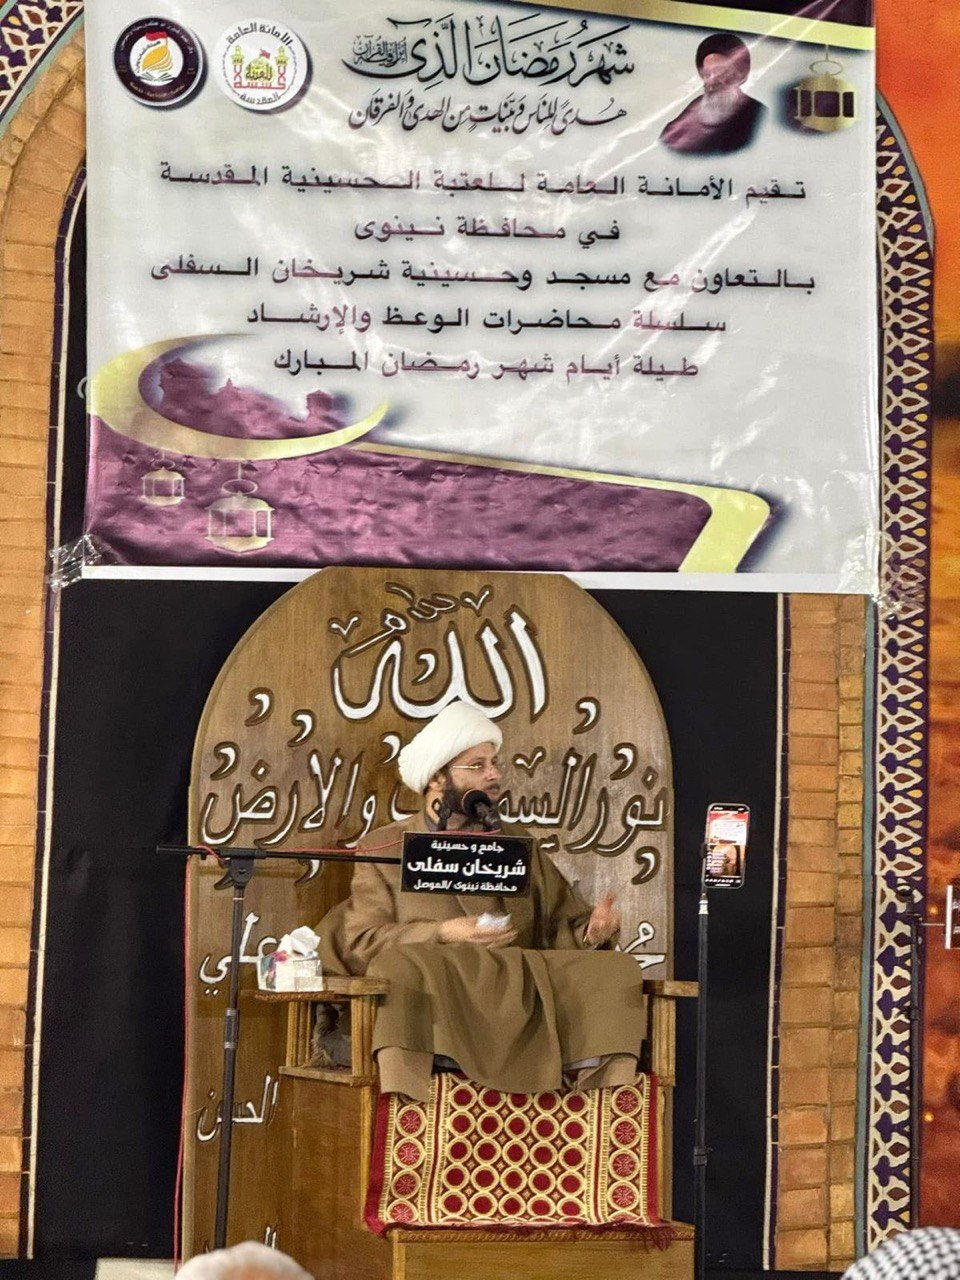 شهر رمضان الذي أنزل فيه القرآن
هدى للناس وبينات من الهدى والفرقان
الأمانة العامة
المقدسة
تقيم الأمانة العامة للعتبة الحسينية المقدسة
في محافظة نينوى
بالتعاون مع مسجد وحسينية شريخان السفلى
سلسلة محاضرات الوعظ والإرشاد
طيلة أيام شهر رمضان المبارك
الله
نور السموات والأرض
جامع و حسينية
شريخان سفلى
محافظة نينوى /الموصل
علي
الحسن